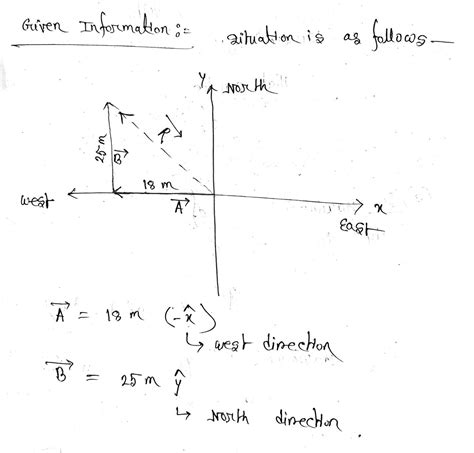 Given Information:= situation is as follows—
Y North
25 m
B
18 m
A
West
x
East
A = 18 m (-x̂)
↳ west direction
B = 25 m ŷ
↳ North direction.